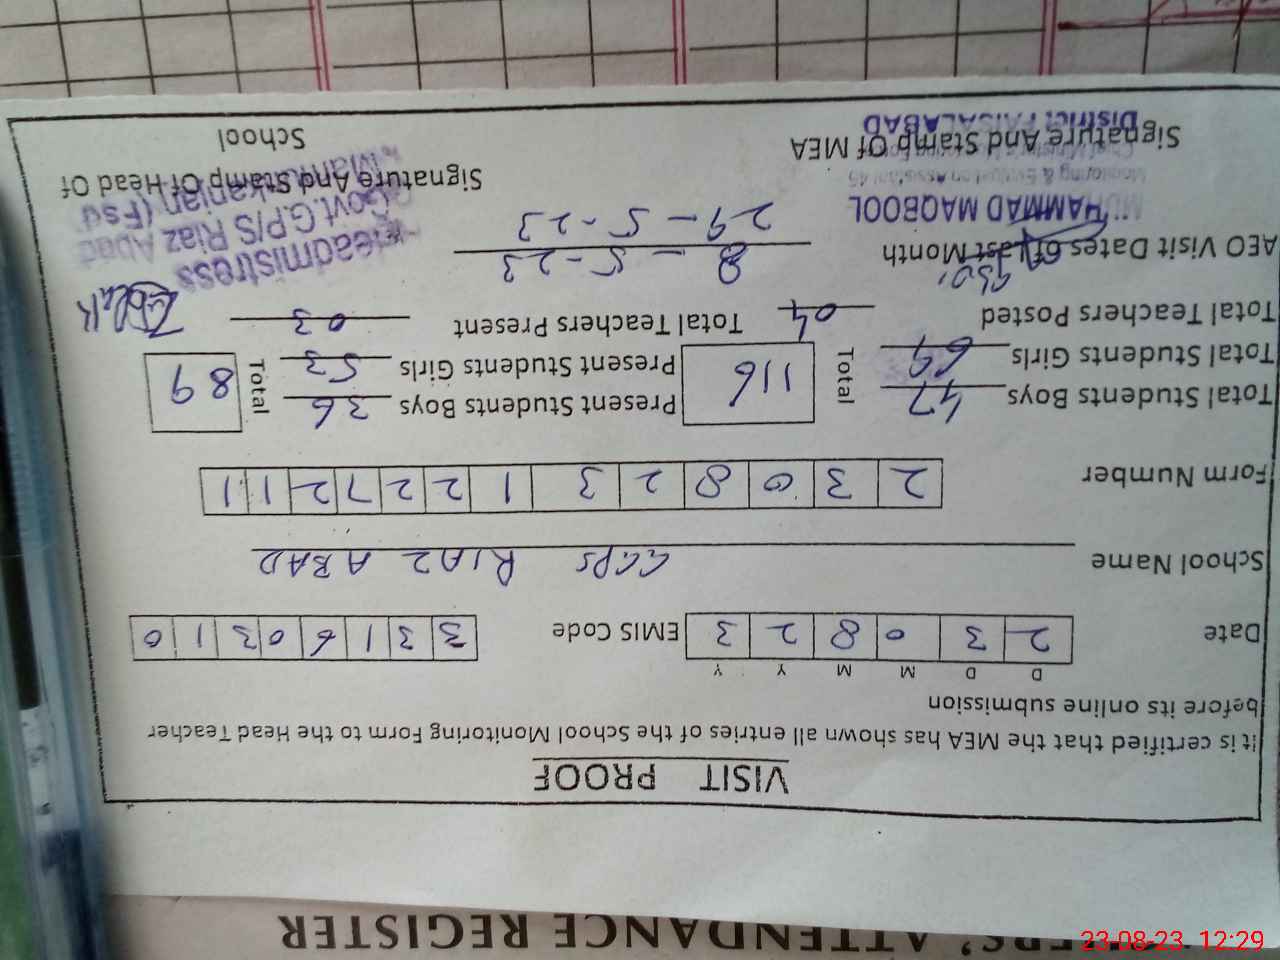 VISIT PROOF
It is certified that the MEA has shown all entries of the School Monitoring Form to the Head Teacher
before its online submission
D D M M Y Y
Date 2 3 0 8 2 3 EMIS Code 3 3 1 6 0 3 1 0
School Name GGPS RIAZ ABAD
Form Number 2 3 0 8 2 3 1 2 2 7 2 1 1
Total Students Boys 47 Total 116 Present Students Boys 36 Total 89
Total Students Girls 69 Present Students Girls 53
Total Teachers Posted 04 Total Teachers Present 03
AEO Visit Dates of Last Month 8-5-23
29-5-23
MUHAMMAD MAQBOOL
Monitoring & Evaluation Assistant 45
District FAISALABAD
Signature And Stamp Of MEA
Headmistress
Govt.G.P/S Riaz Abad
(Fsd
Signature And Stamp Of Head Of
School
ERS' ATTENDANCE REGISTER
23-08-23 12:29